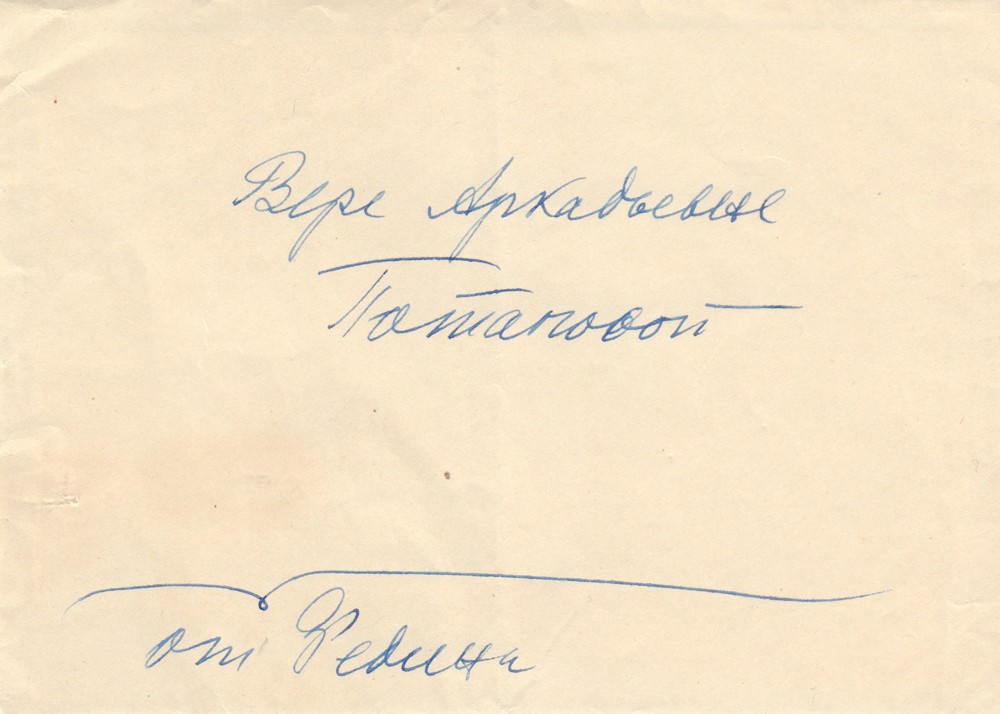 Вере Аркадьевне
Потаповой
от Федина